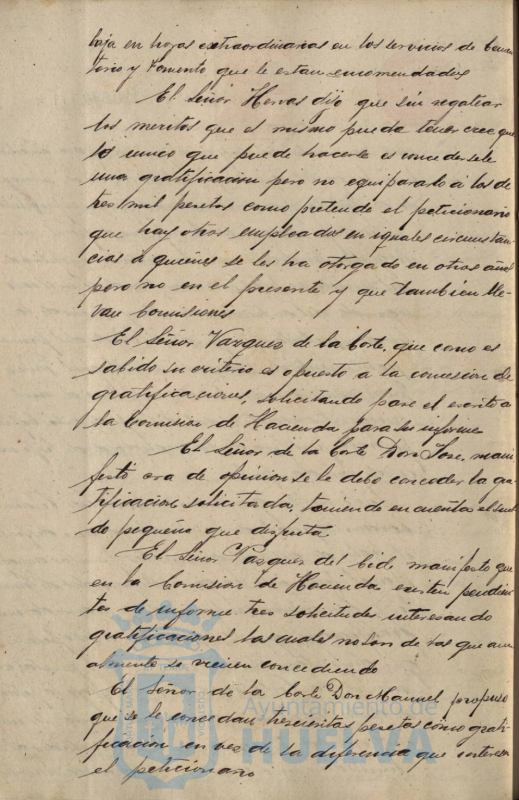 baja en hojas extraordinarias en los servicios de Cemen
terio y Fomento que le estan encomendados
El Señor Hervas dijo que sin regatear
los meritos que el mismo pueda tener cree que
lo unico que puede hacerse es concedersele
una gratificacion pero no equipararlo á los de
tres mil pesetas como pretende el peticionario
que hay otros empleados en iguales circunstan
cias á quienes se les ha otorgado en otros años
pero no en el presente y que tambien lle-
van Comisiones
El Señor Vazquez de la Corte, que como es
sabido su criterio es opuesto a la concesion de
gratificaciones, solicitando pase el escrito a
la Comision de Hacienda para su informe
El Señor de la Corte Don Jose, mani
festó era de opinion se le debo conceder la gra
tificacion solicitada, teniendo en cuenta el suel
do pequeño que disfruta
El Señor Vazquez del Cid manifesto que
en la Comision de Hacienda existen pendien
tes de informe tres solicitudes interesando
gratificaciones las cuales no son de las que anu
almente se vienen concediendo
El Señor de la Corte Don Manuel propuso
que se le concedan trescientas pesetas como grati
ficación en vez de la diferencia que interesa
el peticionario
Ayuntamiento de
HUELVA